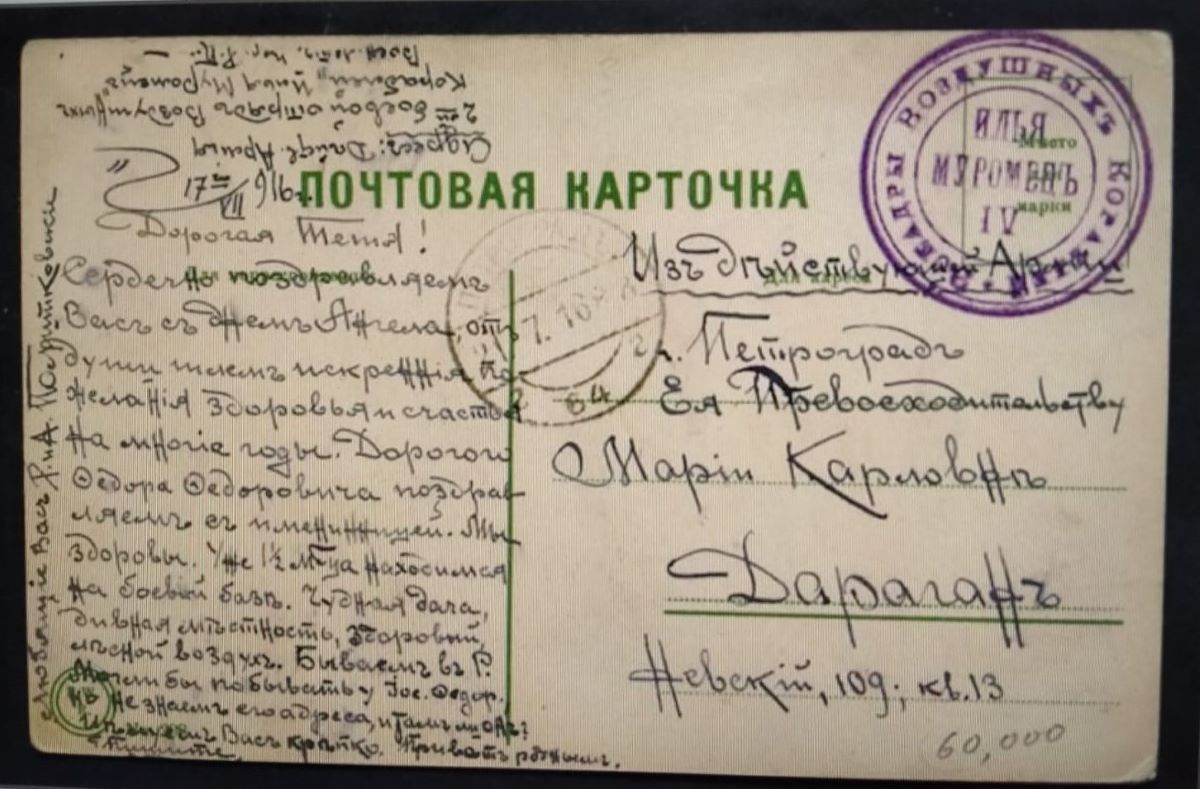 Адресъ: Дѣйств. Армія
2ой боевой отрядъ Воздушныхъ
Кораблей „Илья Муромецъ“
Воен. лет.
17 VII 1916
ПОЧТОВАЯ КАРТОЧКА
ЭСКАДРЫ ВОЗДУШНЫХЪ КОРАБЛЕЙ
ИЛЬЯ
МУРОМЕЦЪ
IV
Мѣсто
марки
Дорогая Тетя!
Сердечно поздравляемъ
Васъ съ днемъ Ангела, отъ
души шлемъ искреннія по-
желанія здоровья и счастья
на многіе годы. Дорогого
Ѳедора Ѳедоровича поздрав-
ляемъ съ именинницей. Мы
здоровы. Уже 1½ м-ца находимся
на боевой базѣ. Чудная дача,
дивная мѣстность, здоровый,
лѣсной воздухъ. Бываемъ въ Р.
Могли бы побывать у Ѳедор.
но не знаемъ его адреса, и тамъ ли онъ?
Цѣлуемъ Васъ крѣпко. Привѣтъ роднымъ.
Пишите.
Любящіе Васъ
7.16
64
Изъ дѣйствующей Арміи
г. Петроградъ
Ея Превосходительству
Маріи Карловнѣ
Дараганъ
Невскій, 109; кв. 13
60,000